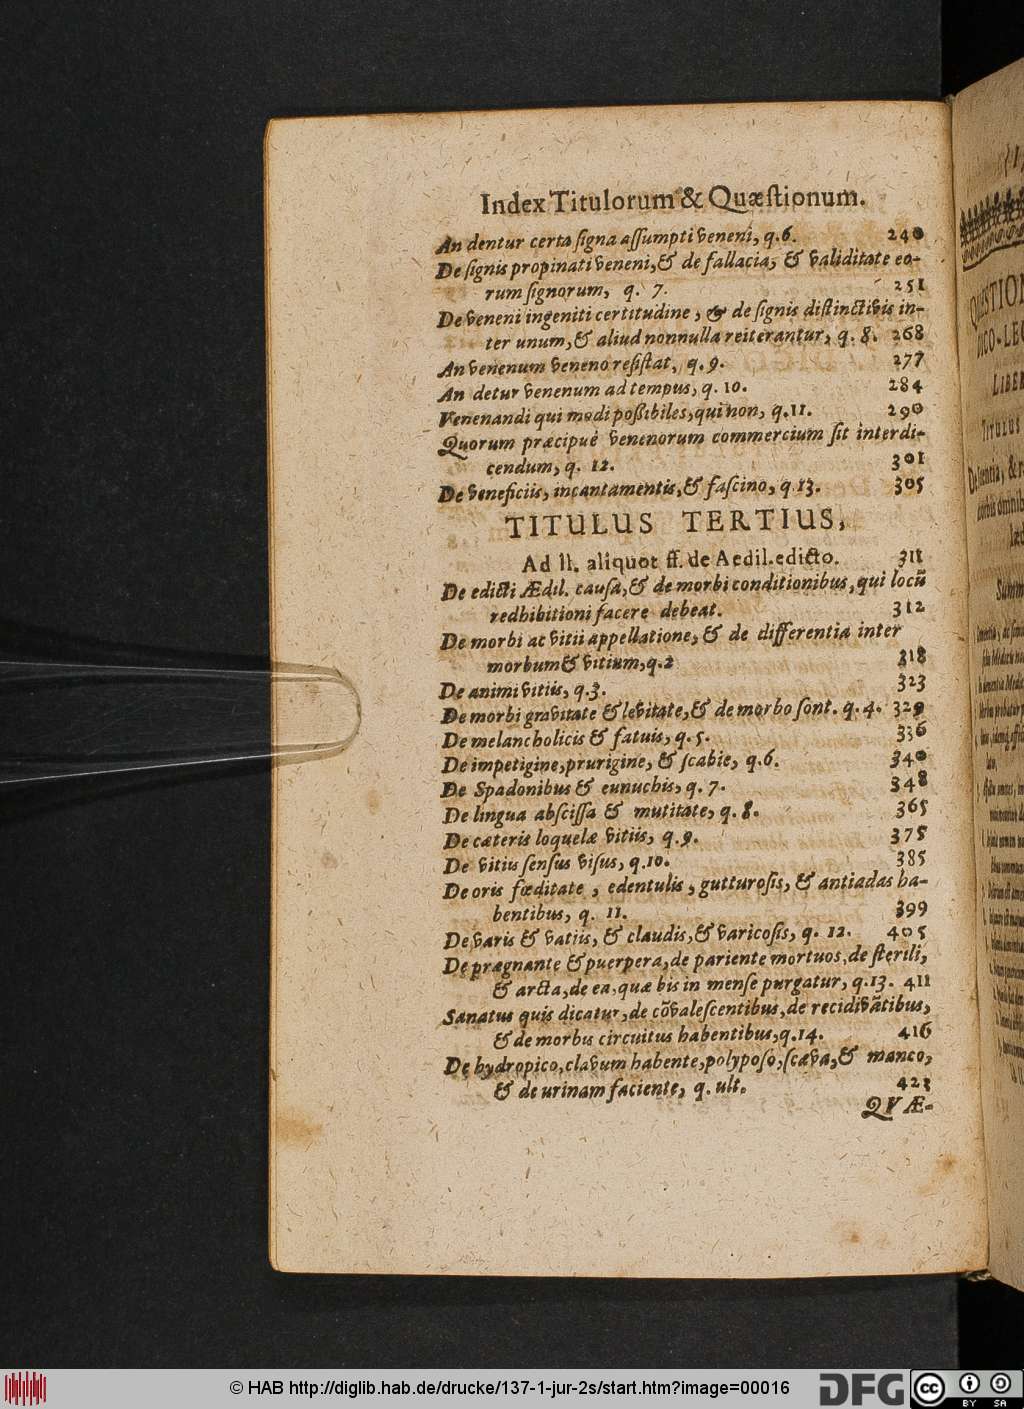 Index Titulorum & Quæſtionum.
An dentur certa ſigna aſſumpti veneni, q.6. 240
De ſignis propinati veneni, & de fallacia, & validitate eo-
rum ſignorum, q. 7. 251
De veneni ingeniti certitudine, & de ſignis diſtinctivis in-
ter unum, & aliud nonnulla reiterantur, q. 8. 268
An venenum veneno reſiſtat, q.9. 277
An detur venenum ad tempus, q. 10. 284
Venenandi qui modi poßibiles, qui non, q.11. 290
Quorum præcipuè venenorum commercium ſit interdi-
cendum, q. 12. 301
De veneficiis, incantamentis, & faſcino, q.13. 305
TITULUS TERTIUS,
Ad ll. aliquot ff. de Aedil. edicto. 311
De edicti Ædil. cauſa, & de morbi conditionibus, qui locũ
redhibitioni facere debeat. 312
De morbi ac vitii appellatione, & de differentia inter
morbum & vitium, q.2 318
De animi vitiis, q.3. 323
De morbi gravitate & levitate, & de morbo ſont. q.4. 329
De melancholicis & fatuis, q.5. 336
De impetigine, prurigine, & ſcabie, q.6. 340
De Spadonibus & eunuchis, q. 7. 348
De lingua abſciſſa & mutitate, q. 8. 365
De cæteris loquelæ vitiis, q.9. 375
De vitiis ſenſus viſus, q.10. 385
De oris fœditate, edentulis, gutturoſis, & antiadas ha-
bentibus, q. 11. 399
De varis & vatiis, & claudis, & varicoſis, q. 12. 405
De prægnante & puerpera, de pariente mortuos, de ſterili,
& arcta, de ea, quæ bis in menſe purgatur, q.13. 411
Sanatus quis dicatur, de cõvaleſcentibus, de recidivãtibus,
& de morbis circuitus habentibus, q.14. 416
De hydropico, clavum habente, polypoſo, ſcæva, & manco,
& de urinam faciente, q. ult. 423
QVÆ-
© HAB http://diglib.hab.de/drucke/137-1-jur-2s/start.htm?image=00016
DFG
cc
BY SA